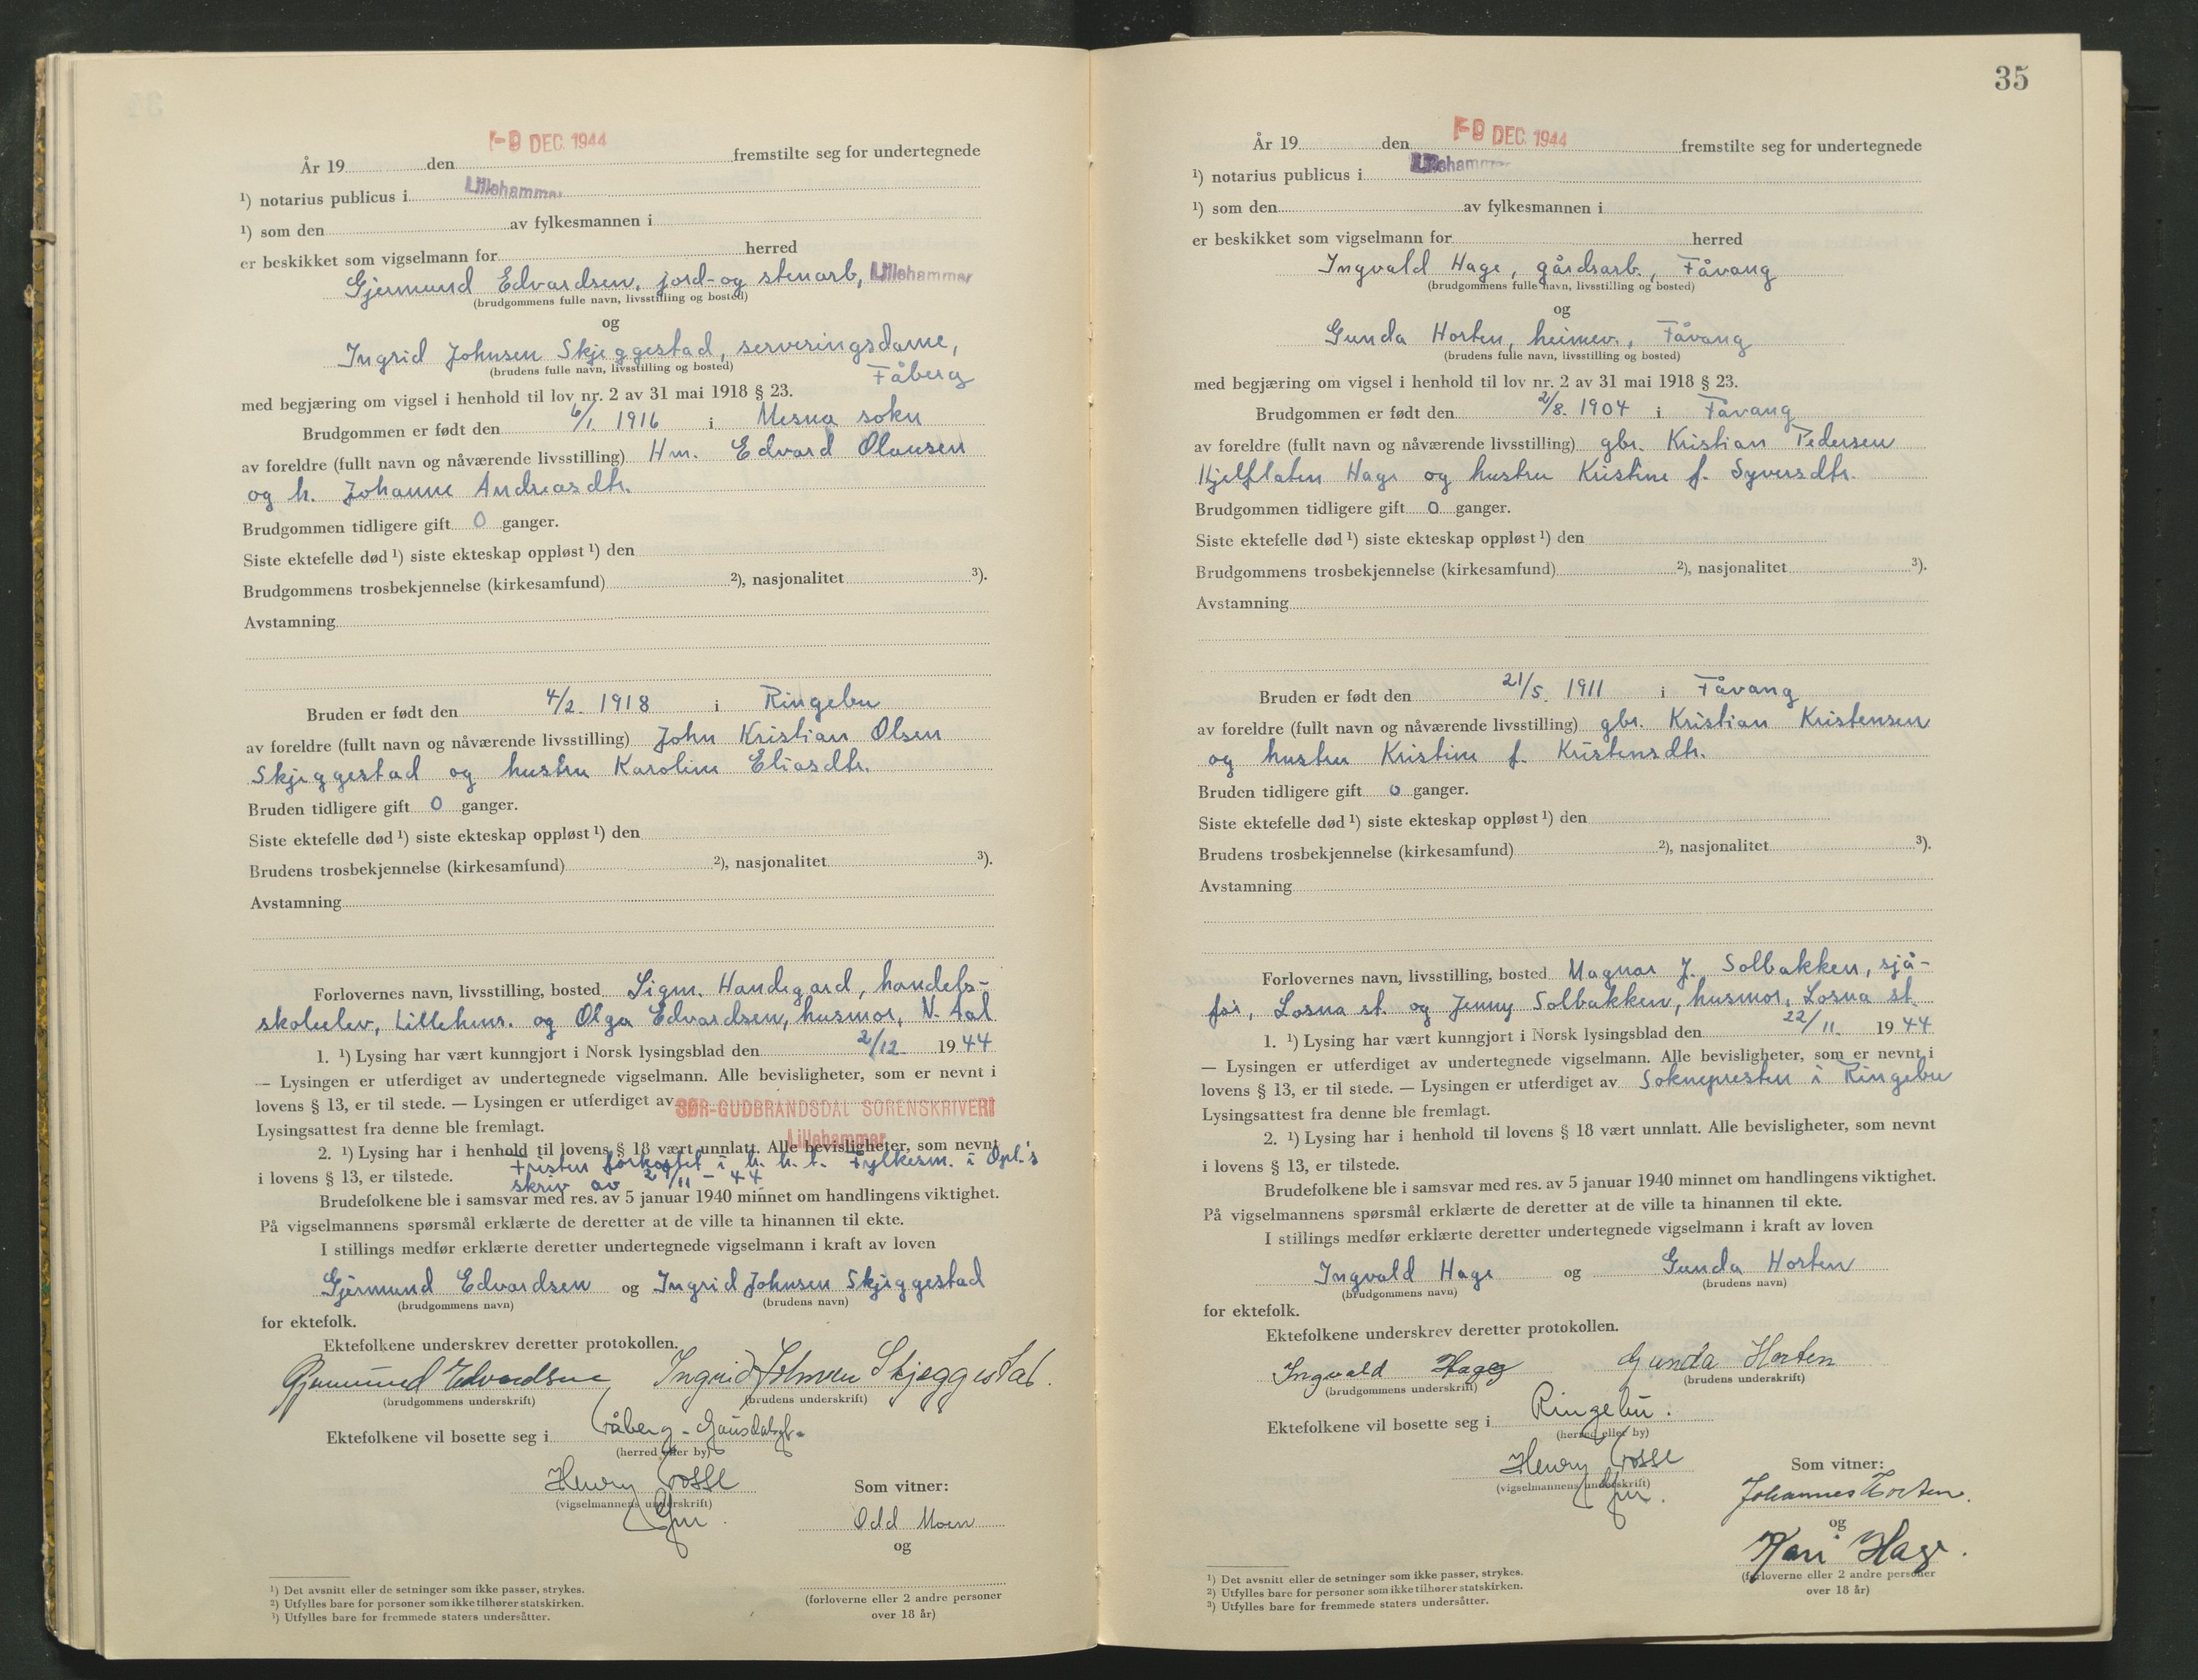 År 19 den -9 DEC. 1944 fremstilte seg for undertegnede
¹) notarius publicus i Lillehammer
¹) som den av fylkesmannen i
er beskikket som vigselmann for herred
Gjermund Edvardsen, jord- og stenarb, Lillehammer
(brudgommens fulle navn, livsstilling og bosted)
og
Ingrid Johnsen Skjeggestad, serveringsdame,
(brudens fulle navn, livsstilling og bosted) Fåberg
med begjæring om vigsel i henhold til lov nr. 2 av 31 mai 1918 § 23.
Brudgommen er født den 6/1. 1916 i Mesna sokn
av foreldre (fullt navn og nåværende livsstilling) Hm. Edvard Olausen
og h. Johanne Andreasdtr.
Brudgommen tidligere gift 0 ganger.
Siste ektefelle død ¹) siste ekteskap oppløst ¹) den
Brudgommens trosbekjennelse (kirkesamfund) ²), nasjonalitet ³).
Avstamning
Bruden er født den 4/2. 1918 i Ringebu
av foreldre (fullt navn og nåværende livsstilling) John Kristian Olsen
Skjeggestad og hustru Karoline Eliasdtr.
Bruden tidligere gift 0 ganger.
Siste ektefelle død ¹) siste ekteskap oppløst ¹) den
Brudens trosbekjennelse (kirkesamfund) ²), nasjonalitet ³).
Avstamning
Forlovernes navn, livsstilling, bosted Sigm. Handegard, handels-
skoleelev, Lillehmr. og Olga Edvardsen, husmor, N. Aal
1. ¹) Lysing har vært kunngjort i Norsk lysingsblad den 2/12. 1944
— Lysingen er utferdiget av undertegnede vigselmann. Alle bevisligheter, som er nevnt i
lovens § 13, er til stede. — Lysingen er utferdiget av SØR-GUDBRANDSDAL SORENSKRIVERI
Lysingsattest fra denne ble fremlagt. Lillehammer
2. ¹) Lysing har i henhold til lovens § 18 vært unnlatt. Alle bevisligheter, som nevnt
Fristen forkortet i h. h. t. Fylkesm. i Opl.'s
i lovens § 13, er tilstede. skriv av 24/11 - 44
Brudefolkene ble i samsvar med res. av 5 januar 1940 minnet om handlingens viktighet.
På vigselmannens spørsmål erklærte de deretter at de ville ta hinannen til ekte.
I stillings medfør erklærte deretter undertegnede vigselmann i kraft av loven
Gjermund Edvardsen og Ingrid Johnsen Skjeggestad
(brudgommens navn) (brudens navn)
for ektefolk.
Ektefolkene underskrev deretter protokollen.
Gjermund Edvardsen Ingrid Johnsen Skjeggestad.
(brudgommens underskrift) (brudens underskrift)
Ektefolkene vil bosette seg i Fåberg
(herred eller by)
Henry Fosse
(vigselmannens underskrift) Som vitner:
Odd Moen
og
(forloverne eller 2 andre personer
over 18 år)
¹) Det avsnitt eller de setninger som ikke passer, strykes.
²) Utfylles bare for personer som ikke tilhører statskirken.
³) Utfylles bare for fremmede staters undersåtter.
35
År 19 den -9 DEC. 1944 fremstilte seg for undertegnede
¹) notarius publicus i Lillehammer
¹) som den av fylkesmannen i
er beskikket som vigselmann for herred
Ingvald Hage, gårdsarb., Fåvang
(brudgommens fulle navn, livsstilling og bosted)
og
Gunda Horten, heimev., Fåvang
(brudens fulle navn, livsstilling og bosted)
med begjæring om vigsel i henhold til lov nr. 2 av 31 mai 1918 § 23.
Brudgommen er født den 2/8. 1904 i Fåvang
av foreldre (fullt navn og nåværende livsstilling) gbr. Kristian Pedersen
Kjelflaten Hage og hustru Kristine f. Syversdtr.
Brudgommen tidligere gift 0 ganger.
Siste ektefelle død ¹) siste ekteskap oppløst ¹) den
Brudgommens trosbekjennelse (kirkesamfund) ²), nasjonalitet ³).
Avstamning
Bruden er født den 21/5. 1911 i Fåvang
av foreldre (fullt navn og nåværende livsstilling) gbr. Kristian Kristensen
og hustru Kristine f. Kristensdtr.
Bruden tidligere gift 0 ganger.
Siste ektefelle død ¹) siste ekteskap oppløst ¹) den
Brudens trosbekjennelse (kirkesamfund) ²), nasjonalitet ³).
Avstamning
Forlovernes navn, livsstilling, bosted Magnar J. Solbakken, sjå-
før, Losna st. og Jenny Solbakken, husmor, Losna st.
1. ¹) Lysing har vært kunngjort i Norsk lysingsblad den 22/11. 1944
— Lysingen er utferdiget av undertegnede vigselmann. Alle bevisligheter, som er nevnt i
lovens § 13, er til stede. — Lysingen er utferdiget av Soknepresten i Ringebu
Lysingsattest fra denne ble fremlagt.
2. ¹) Lysing har i henhold til lovens § 18 vært unnlatt. Alle bevisligheter, som nevnt
i lovens § 13, er tilstede.
Brudefolkene ble i samsvar med res. av 5 januar 1940 minnet om handlingens viktighet.
På vigselmannens spørsmål erklærte de deretter at de ville ta hinannen til ekte.
I stillings medfør erklærte deretter undertegnede vigselmann i kraft av loven
Ingvald Hage og Gunda Horten
(brudgommens navn) (brudens navn)
for ektefolk.
Ektefolkene underskrev deretter protokollen.
Ingvald Hage Gunda Horten
(brudgommens underskrift) (brudens underskrift)
Ektefolkene vil bosette seg i Ringebu.
(herred eller by)
Henry Fosse
(vigselmannens underskrift) Som vitner:
Johannes Horten.
og
Kari Hage.
(forloverne eller 2 andre personer
over 18 år)
¹) Det avsnitt eller de setninger som ikke passer, strykes.
²) Utfylles bare for personer som ikke tilhører statskirken.
³) Utfylles bare for fremmede staters undersåtter.